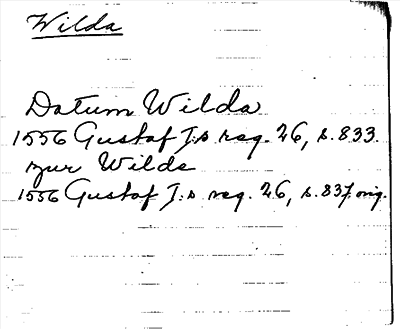 Wilda
Datum Wilda
1556 Gustaf I:s reg. 26, s. 833.
zur Wilde
1556 Gustaf I:s reg. 26, s. 837 orig.